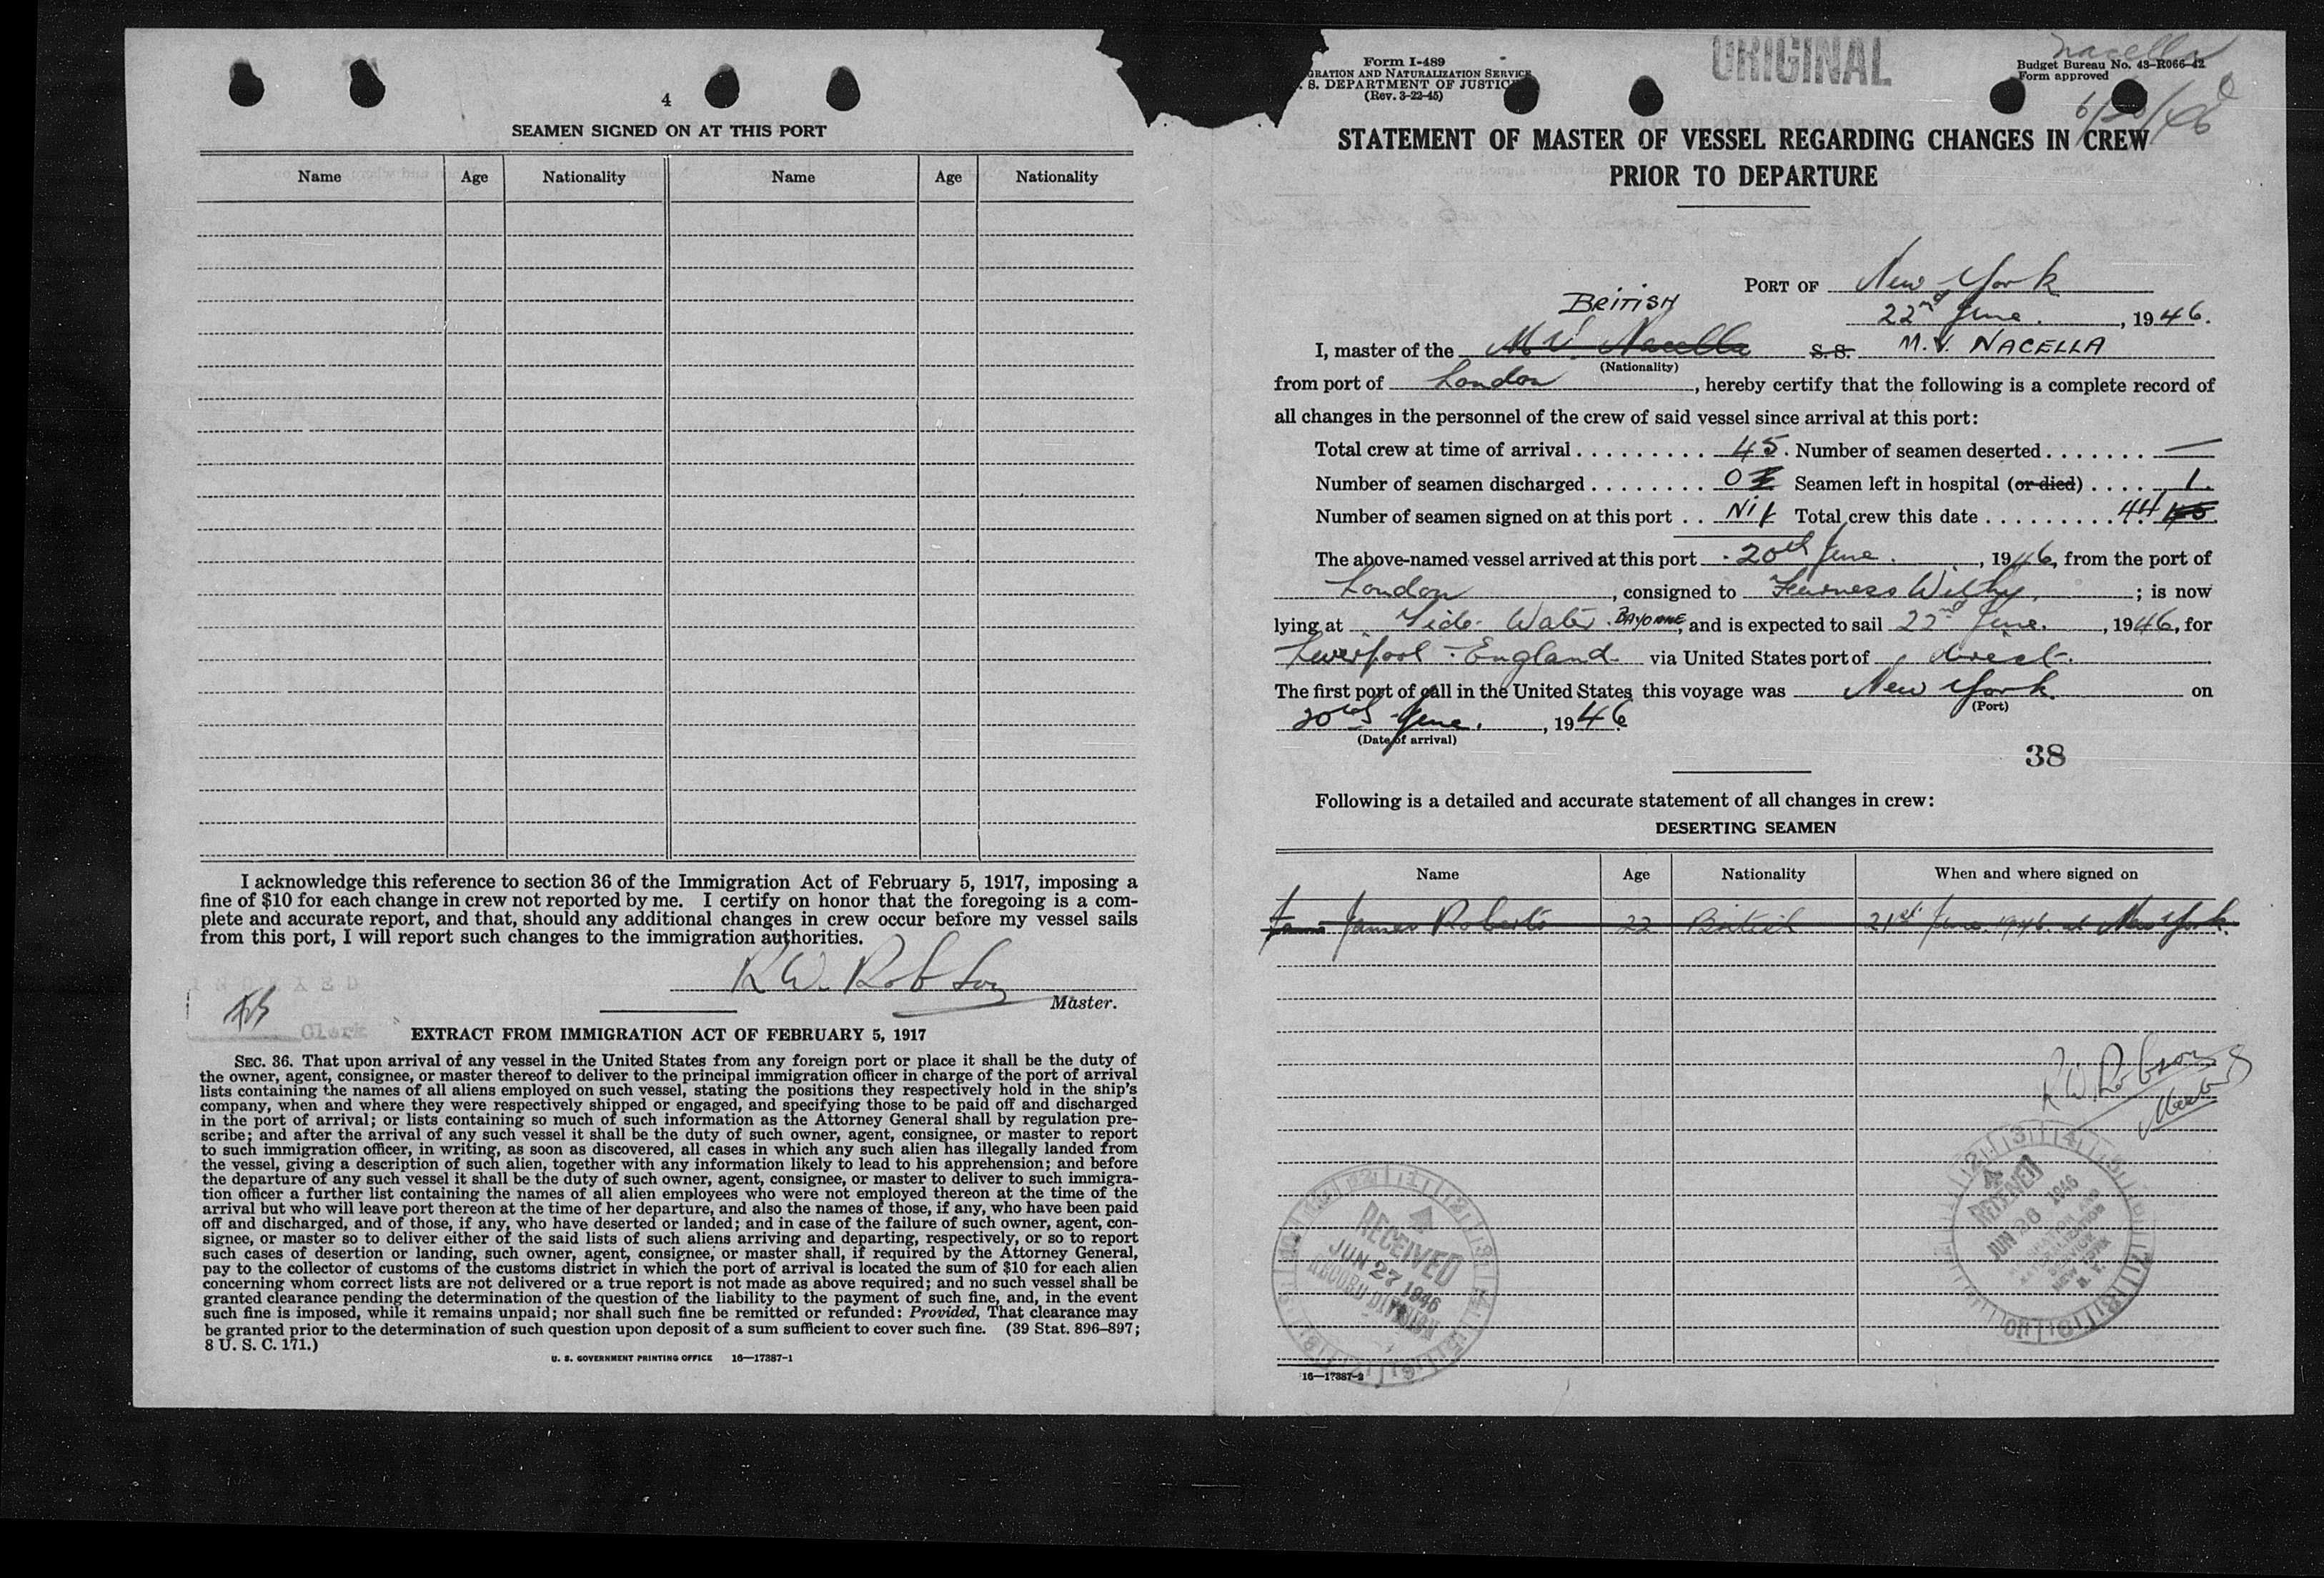 4
SEAMEN SIGNED ON AT THIS PORT
Name Age Nationality Name Age Nationality
I acknowledge this reference to section 36 of the Immigration Act of February 5, 1917, imposing a
fine of $10 for each change in crew not reported by me. I certify on honor that the foregoing is a com-
plete and accurate report, and that, should any additional changes in crew occur before my vessel sails
from this port, I will report such changes to the immigration authorities.
R W. Robson
Master.
INDEXED
Clerk
EXTRACT FROM IMMIGRATION ACT OF FEBRUARY 5, 1917
SEC. 36. That upon arrival of any vessel in the United States from any foreign port or place it shall be the duty of
the owner, agent, consignee, or master thereof to deliver to the principal immigration officer in charge of the port of arrival
lists containing the names of all aliens employed on such vessel, stating the positions they respectively hold in the ship's
company, when and where they were respectively shipped or engaged, and specifying those to be paid off and discharged
in the port of arrival; or lists containing so much of such information as the Attorney General shall by regulation pre-
scribe; and after the arrival of any such vessel it shall be the duty of such owner, agent, consignee, or master to report
to such immigration officer, in writing, as soon as discovered, all cases in which any such alien has illegally landed from
the vessel, giving a description of such alien, together with any information likely to lead to his apprehension; and before
the departure of any such vessel it shall be the duty of such owner, agent, consignee, or master to deliver to such immigra-
tion officer a further list containing the names of all alien employees who were not employed thereon at the time of the
arrival but who will leave port thereon at the time of her departure, and also the names of those, if any, who have been paid
off and discharged, and of those, if any, who have deserted or landed; and in case of the failure of such owner, agent, con-
signee, or master so to deliver either of the said lists of such aliens arriving and departing, respectively, or so to report
such cases of desertion or landing, such owner, agent, consignee, or master shall, if required by the Attorney General,
pay to the collector of customs of the customs district in which the port of arrival is located the sum of $10 for each alien
concerning whom correct lists are not delivered or a true report is not made as above required; and no such vessel shall be
granted clearance pending the determination of the question of the liability to the payment of such fine, and, in the event
such fine is imposed, while it remains unpaid; nor shall such fine be remitted or refunded: Provided, That clearance may
be granted prior to the determination of such question upon deposit of a sum sufficient to cover such fine. (39 Stat. 896-897;
8 U. S. C. 171.)
U. S. GOVERNMENT PRINTING OFFICE 16—17387-1
Form I-489
GRATION AND NATURALIZATION SERVICE
. S. DEPARTMENT OF JUSTIC
(Rev. 3-22-45)
ORIGINAL
Nacella
Budget Bureau No. 43-R066-42
Form approved
6/20/46
STATEMENT OF MASTER OF VESSEL REGARDING CHANGES IN CREW
PRIOR TO DEPARTURE
PORT OF New York
BRITISH
22nd June. , 1946.
I, master of the M.V. Nacella S.S. M.V. NACELLA
(Nationality)
from port of London , hereby certify that the following is a complete record of
all changes in the personnel of the crew of said vessel since arrival at this port:
Total crew at time of arrival . . . . . . . . . 45. Number of seamen deserted . . . . . . . —
Number of seamen discharged . . . . . . . . 0 Seamen left in hospital (or died) . . . . 1.
Number of seamen signed on at this port . . Nil Total crew this date . . . . . . . . . 44 45
The above-named vessel arrived at this port 20th June. , 1946, from the port of
London , consigned to Furness Withy. ; is now
lying at Tide Water. BAYONNE, and is expected to sail 22nd June. , 1946, for
Liverpool England. via United States port of direct.
The first port of call in the United States this voyage was New York. on
(Port)
20th June. , 1946
(Date of arrival)
38
Following is a detailed and accurate statement of all changes in crew:
DESERTING SEAMEN
Name Age Nationality When and where signed on
James Roberts 22 British 21st June. 1946. at New York.
R W. Robson
Master
RECEIVED
JUN 27 1946
RECORD DIVISION
RECEIVED
JUN 26 1946
IMMIGRATION AND
NATURALIZATION
SERVICE
NEW YORK
N. Y.
16—17387-2